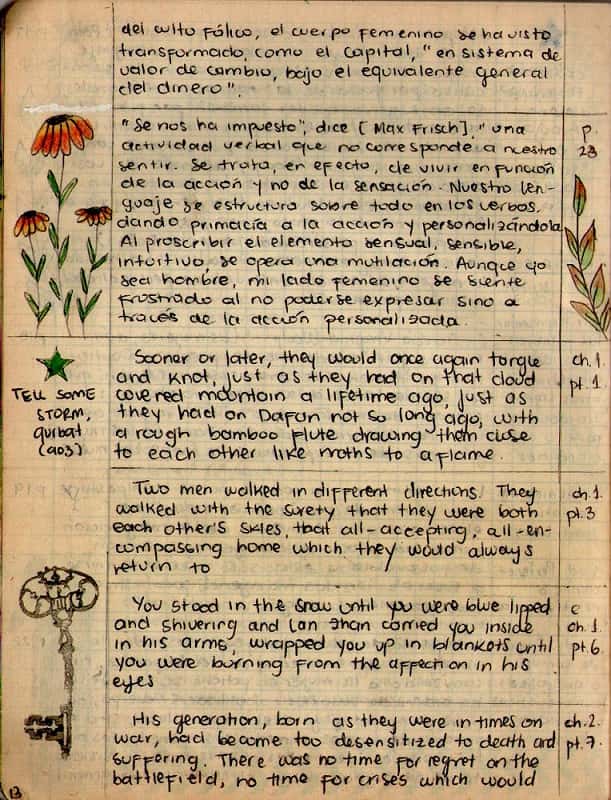 del culto fálico, el cuerpo femenino se ha visto
transformado, como el capital, "en sistema de
valor de cambio, bajo el equivalente general
del dinero".
"Se nos ha impuesto", dice [Max Frisch], "una
actividad verbal que no corresponde a nuestro
sentir. Se trata, en efecto, de vivir en función
de la acción y no de la sensación. Nuestro len-
guaje se estructura sobre todo en los verbos,
dando primacía a la acción y personalizándola.
Al proscribir el elemento sensual, sensible,
intuitivo, se opera una mutilación. Aunque yo
sea hombre, mi lado femenino se siente
frustrado al no poderse expresar sino a
través de la acción personalizada.
p.
23
TELL SOME
STORM,
qurbat
(ao3)
Sooner or later, they would once again tangle
and knot, just as they had on that cloud
covered mountain a lifetime ago, just as
they had on Dafan not so long ago, with
a rough bamboo flute drawing them close
to each other like moths to a flame.
ch. 1.
pt. 1
Two men walked in different directions. They
walked with the surety that they were both
each other's skies, that all-accepting, all-en-
compassing home which they would always
return to
ch. 1.
pt. 3
You stood in the snow until you were blue lipped
and shivering and Lan Zhan carried you inside
in his arms, wrapped you up in blankets until
you were burning from the affection in his
eyes
c
ch. 1.
pt. 6.
His generation, born as they were in times on
war, had become too desensitized to death and
suffering. There was no time for regret on the
battlefield, no time for crises which would
ch. 2.
pt. 7.
13